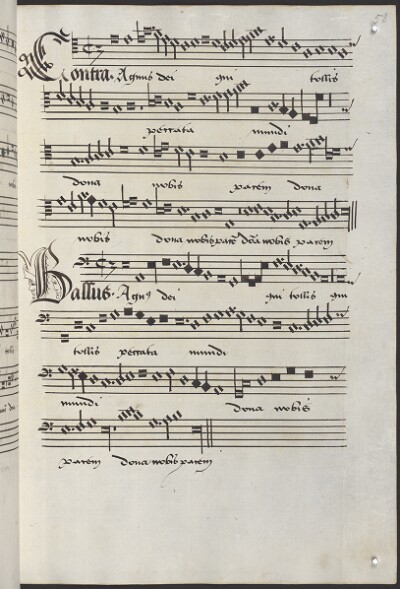 58
Contra Agnus dei qui tollis
peccata mundi
dona nobis pacem dona
nobis dona nobis pacem dona nobis pacem
Bassus Agnus dei qui tollis qui
tollis peccata mundi
mundi dona nobis
pacem dona nobis pacem